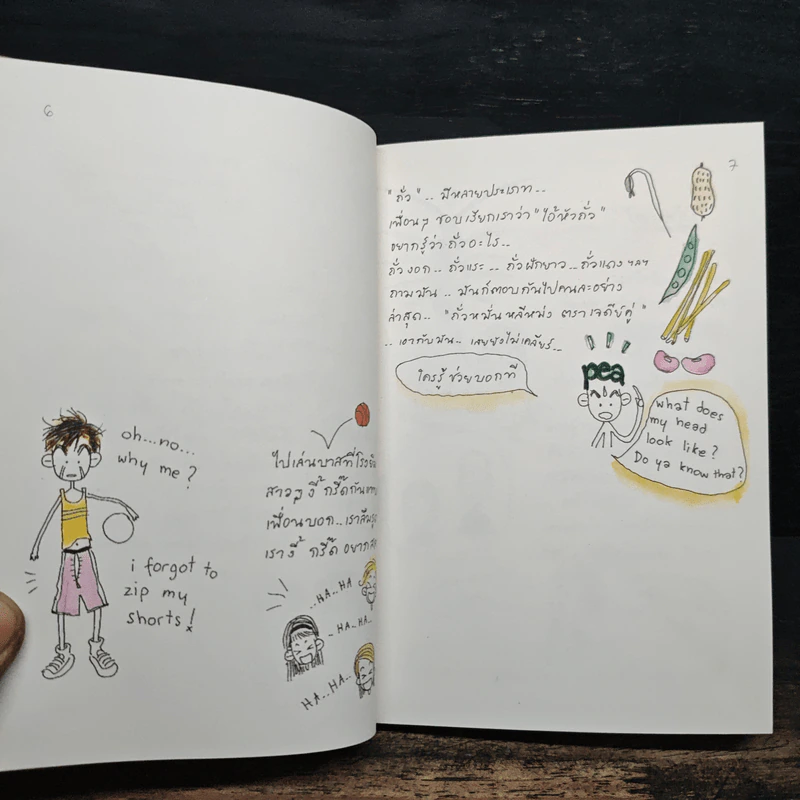 6
oh...no...
why me?
i forgot to
zip my
shorts!
ไปเล่นบาสที่โรงยิม
สาวๆ งี้ กรี๊ดกัน
เพื่อนบอก..เราลืม
เรางี้ กรี๊ด อยาก
..HA..HA
~HA..HA..
HA..HA..
7
"ถั่ว" .. มีหลายประเภท..
เพื่อนๆ ชอบเรียกเราว่า "ไอ้หัวถั่ว"
อยากรู้ว่า ถั่วอะไร..
ถั่วงอก.. ถั่วแระ.. ถั่วฝักยาว...ถั่วแดง ฯลฯ
ถามมัน .. มันก็ตอบกันไปคนละอย่าง
ล่าสุด.. "ถั่วหมั่นหลีหม่ง ตราเจดีย์คู่"
..เอากับมัน.. เลยยังไม่เคลียร์...
ใครรู้ ช่วยบอกที
pea
what does
my head
look like?
Do ya know that?